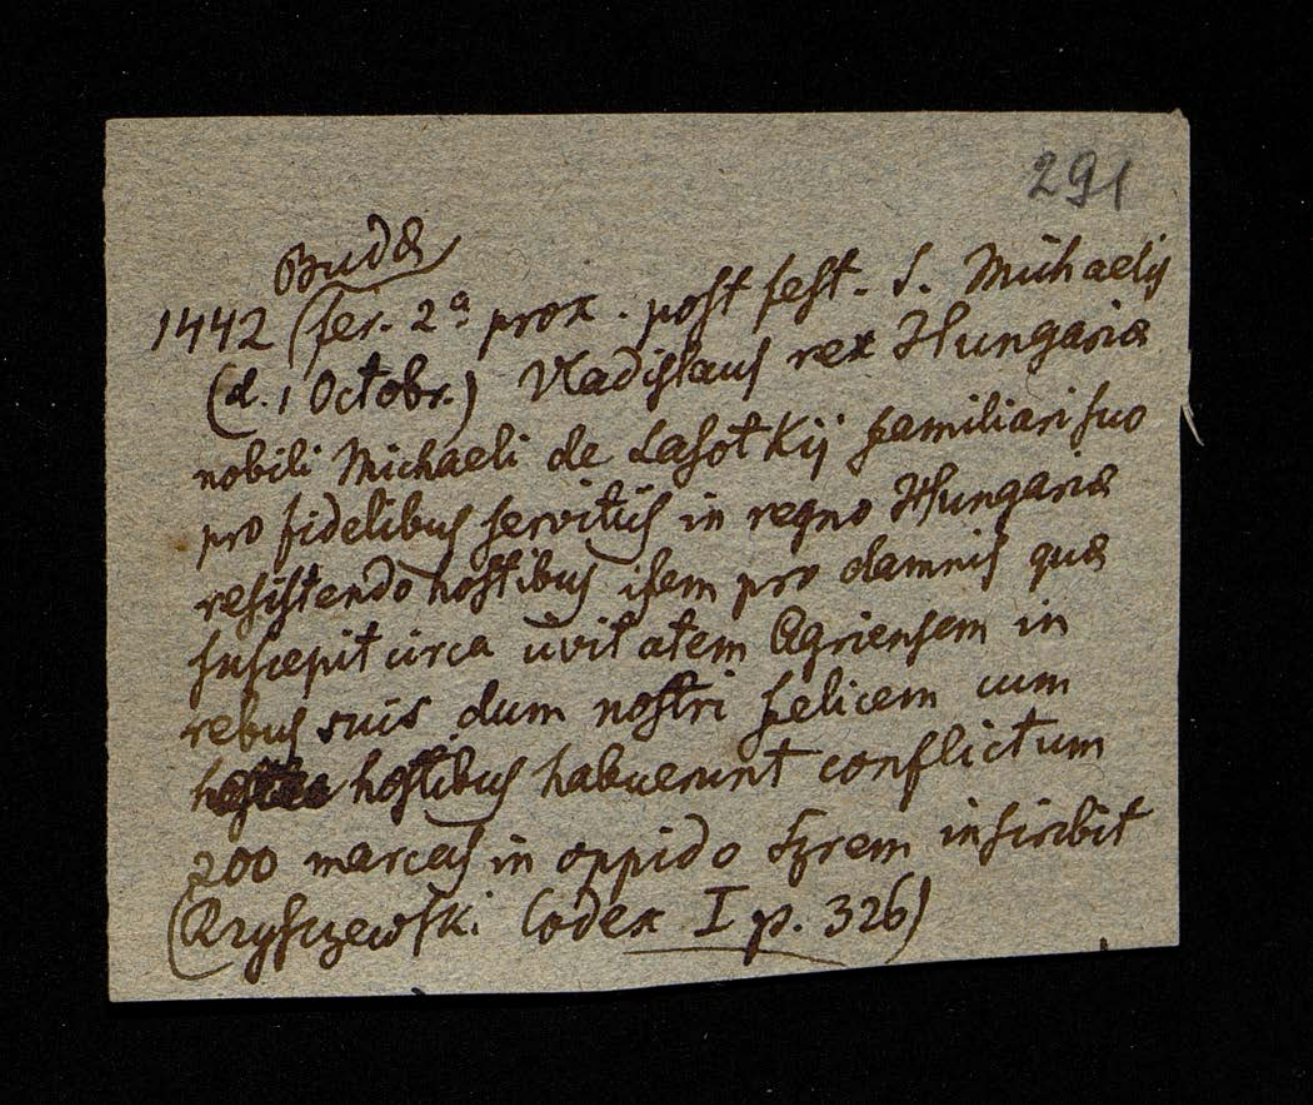 291
Budæ
1442 fer. 2ª prox. post fest. S. Michaelis
(d. 1 Octobr.) Vladislaus rex Hungariæ
nobili Michaeli de Lasotkij familiari suo
pro fidelibus servitiis in regno Hungariæ
resistendo hostibus item pro damnis quæ
suscepit circa civitatem Agriensem in
rebus suis dum nostri felicem cum
hostibus habuerunt conflictum
200 marcas in oppido Szrem inscribit
(Rzyszczewski Codex I p. 326)